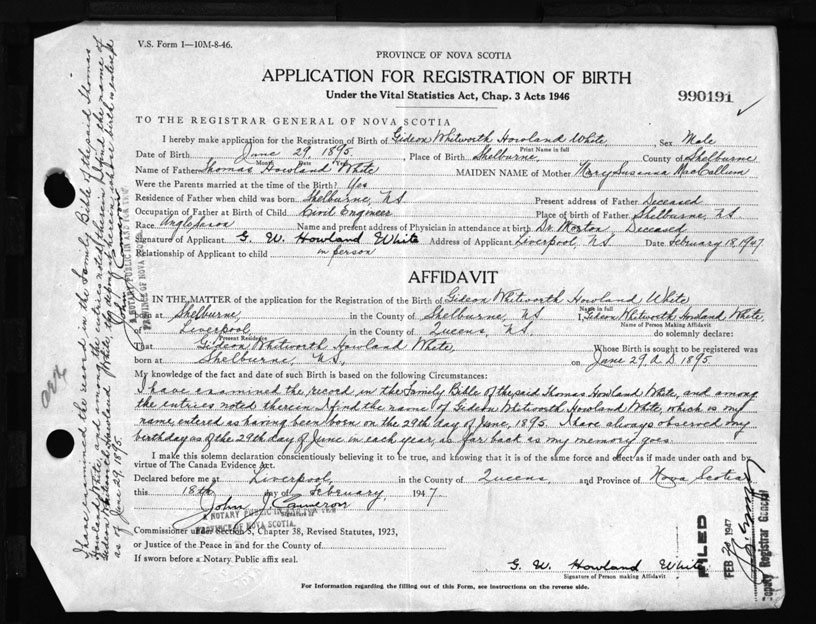 V.S. Form 1—10M-8-46.
PROVINCE OF NOVA SCOTIA
APPLICATION FOR REGISTRATION OF BIRTH
Under the Vital Statistics Act, Chap. 3 Acts 1946
990191
TO THE REGISTRAR GENERAL OF NOVA SCOTIA
I hereby make application for the Registration of Birth of Gideon Whitworth Howland White, Sex Male
Print Name in full
Date of Birth June 29, 1895, Place of Birth Shelburne, County of Shelburne
Month Date Year
Name of Father Thomas Howland White MAIDEN NAME of Mother Mary Susanna MacCallum
Were the Parents married at the time of Birth? Yes
Residence of Father when child was born Shelburne, NS Present address of Father Deceased
Occupation of Father at Birth of Child Civil Engineer Place of birth of Father Shelburne, NS
Race Anglo Saxon Name and present address of Physician in attendance at birth Dr. Morton Deceased
Signature of Applicant G. W. Howland White Address of Applicant Liverpool, NS Date February 18, 1947
Relationship of Applicant to child in person
AFFIDAVIT
IN THE MATTER of the application for the Registration of the Birth of Gideon Whitworth Howland White
Name in full
born at Shelburne, in the County of Shelburne, NS I, Gideon Whitworth Howland White,
Name of Person Making Affidavit
Liverpool, in the County of Queens, NS. do solemnly declare:
Present Residence
That Gideon Whitworth Howland White, Whose Birth is sought to be registered was
born at Shelburne, NS, on June 29 A.D. 1895.
My knowledge of the fact and date of such Birth is based on the following Circumstances:
I have examined the record in the Family Bible of the said Thomas Howland White, and among
the entries noted therein I find the name of Gideon Whitworth Howland White, which is my
name entered as having been born on the 29th day of June, 1895. I have always observed my
birthday as of the 29th day of June in each year, as far back as my memory goes.
I make this solemn declaration conscientiously believing it to be true, and knowing that it is of the same force and effect as if made under oath and by
virtue of The Canada Evidence Act.
Declared before me at Liverpool, in the County of Queens, and Province of Nova Scotia
this 18th day of February, 1947
John J Cameron
A NOTARY PUBLIC IN AND FOR THE
PROVINCE OF NOVA SCOTIA.
Commissioner under Section 5, Chapter 38, Revised Statutes, 1923,
or Justice of the Peace in and for the County of
If sworn before a Notary Public affix seal.
G. W. Howland White
Signature of Person making Affidavit
For Information regarding the filling out of this Form, see instructions on the reverse side.
FILED
FEB 20 1947
Deputy Registrar General
I have examined the record in the Family Bible of the said Thomas
Howland White, and among the entries noted therein I find the name of
Gideon Whitworth Howland White, the
as of June 29, 1895.
John J Cameron
A NOTARY PUBLIC IN AND FOR THE
PROVINCE OF NOVA SCOTIA